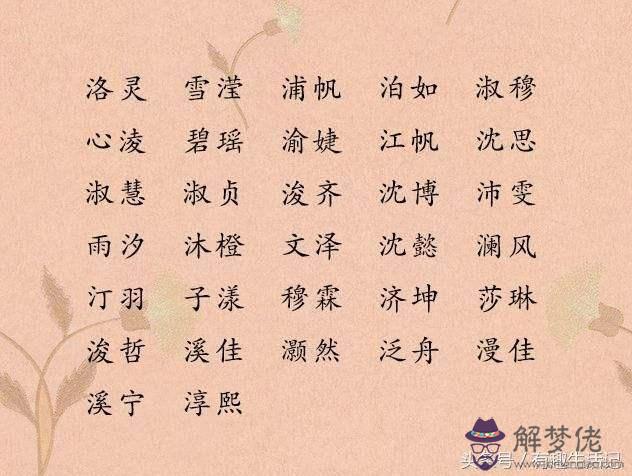 洛灵 雪滢 浦帆 泊如 淑穆
心淩 碧瑶 渝婕 江帆 沈思
淑慧 淑贞 浚齐 沈博 沛雯
雨汐 沐橙 文泽 沈懿 澜风
汀羽 子漾 穆霖 济坤 莎琳
浚哲 溪佳 灏然 泛舟 漫佳
溪宁 淳熙
解梦佬
头条号/有趣生活号